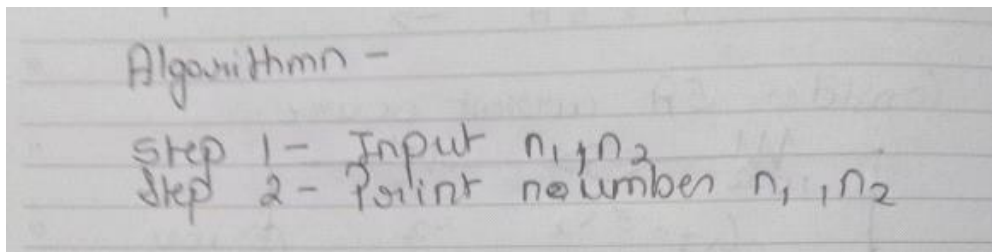 Algorithmn -
Step 1 - Input n₁, n₂
Step 2 - Print noumber n₁, n₂